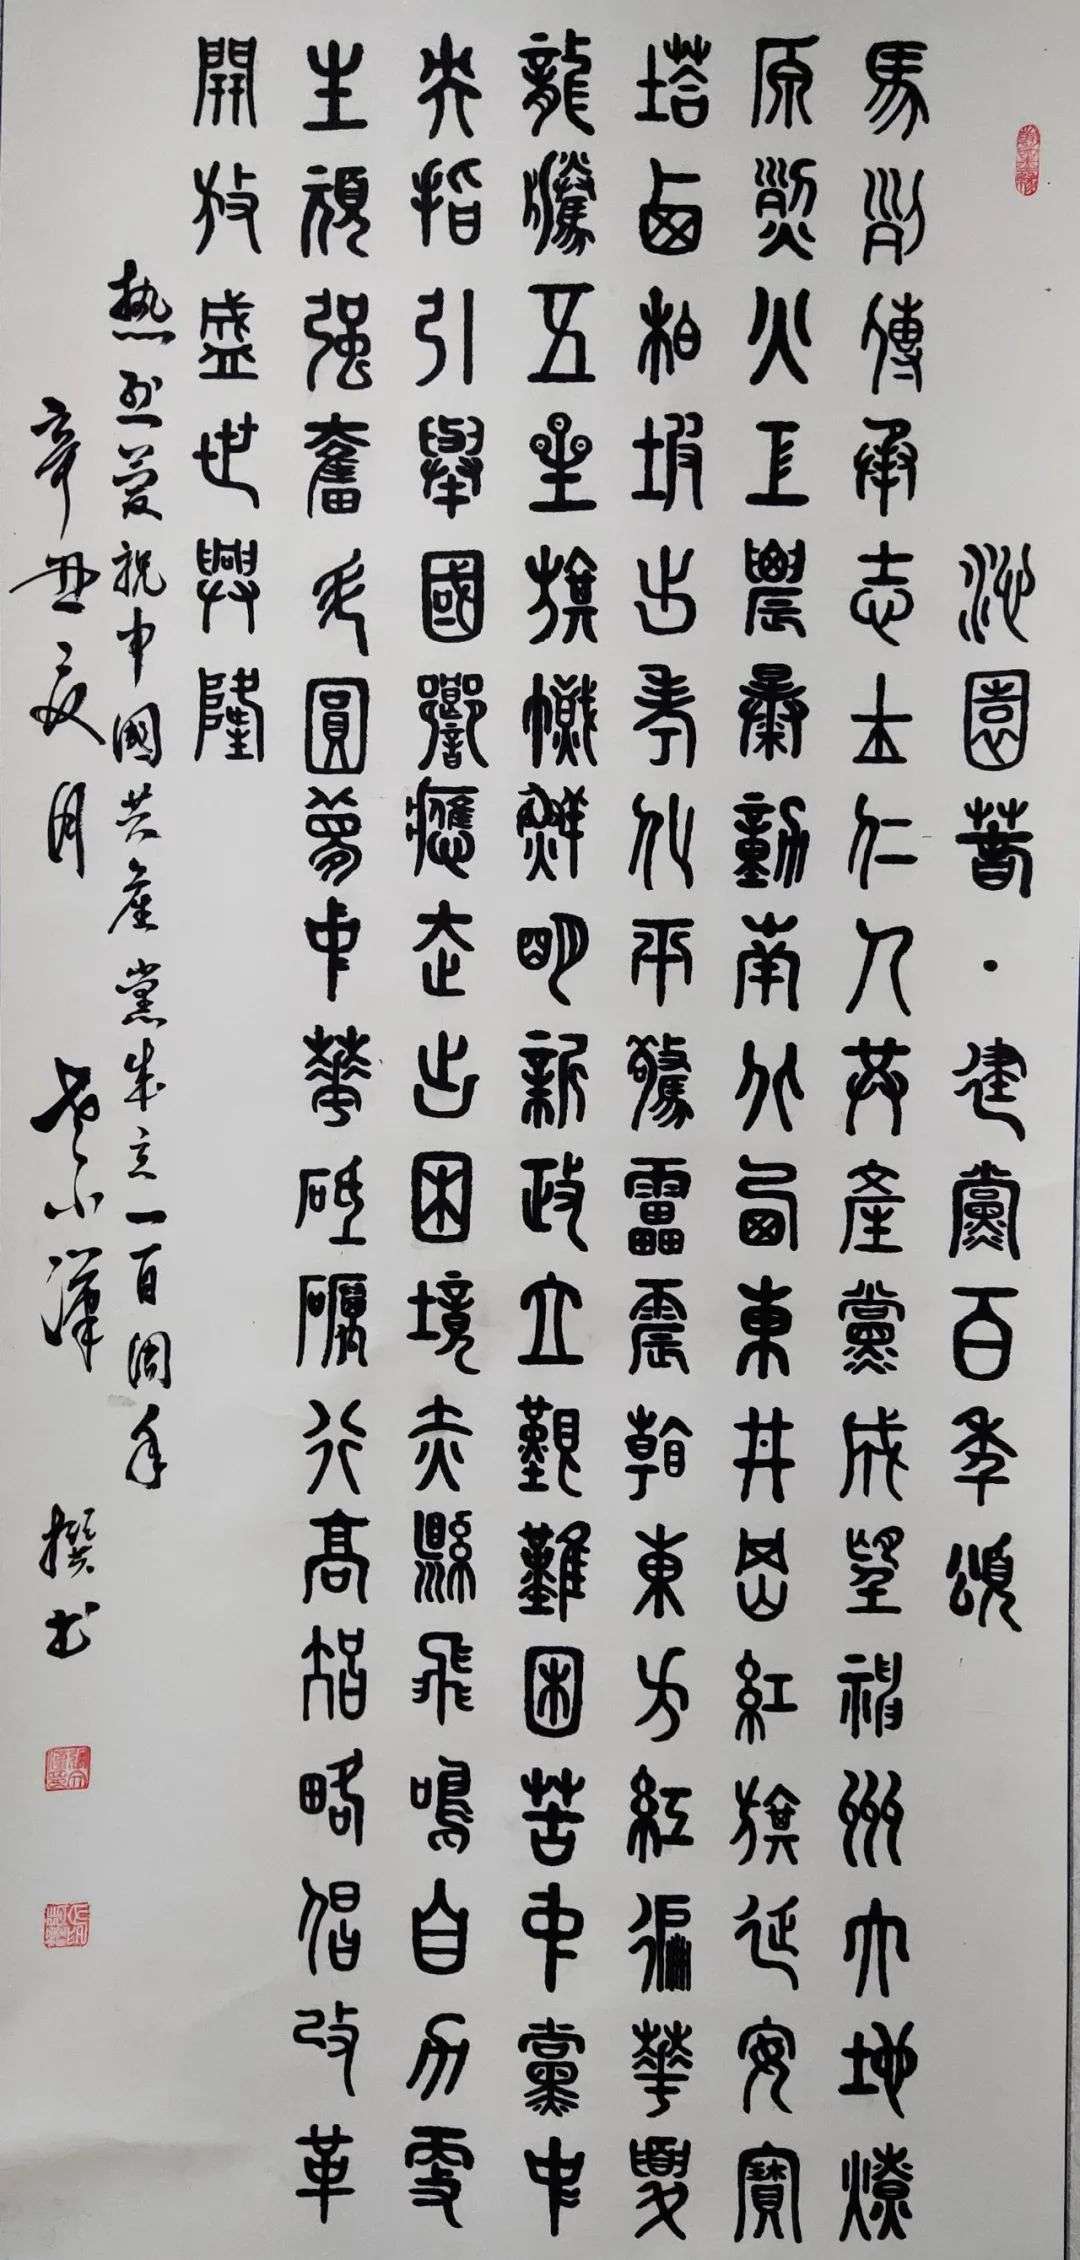 沁園春·建黨百年頌
馬列傳承志士仁人共產黨成望神州大地燎
原烈火工農暴動南北西東井岡紅旗延安寶
塔西柏坡出孝化平驚雷震韓東方紅徧華夏
龍騰五星旗幟鮮明新政立艱難困苦中黨中
央指引舉國響應走出困境赤縣飛鳴自力更
生頑強奮鬥圓夢中華砥礪行高韜略倡改革
開放盛世興隆
熱烈慶祝中國共產黨成立一百周年
辛丑夏月 撰書